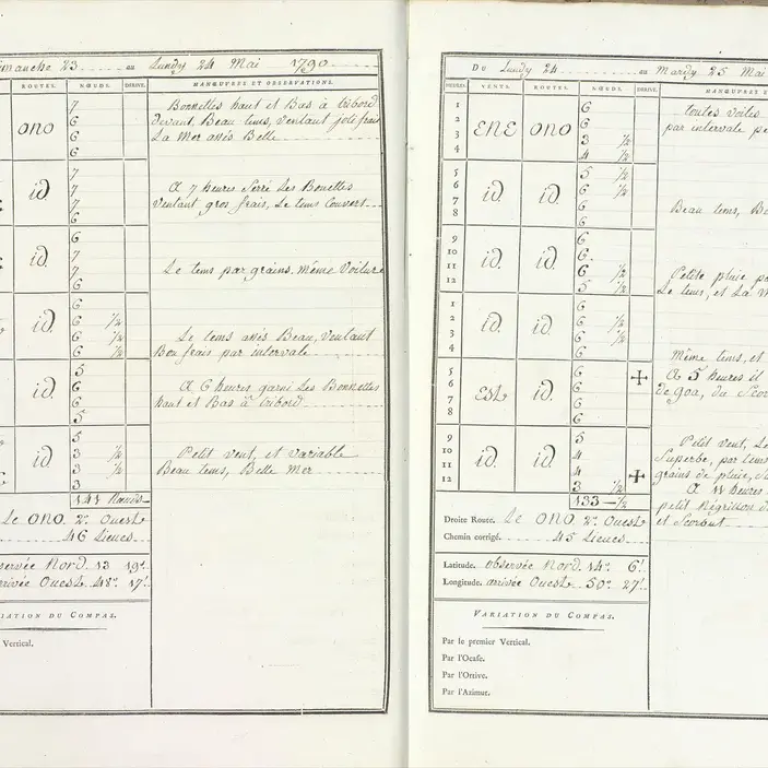 Dimanche 23 au Lundy 24 Mai 1790
ROUTES. NŒUDS. DÉRIVE. MANŒUVRES ET OBSERVATIONS.
ONO
7
6
6
6
Bonnettes haut et Bas à tribord
devant. Beau tems, ventant joli frais
La Mer assés Belle
id.
7
7
7
6
A 7 heures Serré Les Bonettes
ventant gros frais, Le tems Couvert
id.
6
7
7
6
Le tems par grains. même Voiture
id.
6
6 1/2
6 1/2
6 1/2
Le tems assés Beau, ventant
Bon frais par intervale
id.
5
6
6
5
A 6 heures garni Les Bonnettes
haut et Bas à tribord
id.
5
3 1/2
3 1/2
3
Petit vent, et variable
Beau tems, Belle Mer
141 Nœuds
Le ONO. 2° Ouest
46 Lieues
observée Nord 13 19'
arrivée Ouest 48° 17'
VARIATION DU COMPAZ.
Vertical.
DU Lundy 24 au Mardy 25 Mai
HEURES VENTS. ROUTES. NŒUDS. DÉRIVE. MANŒUVRES ET
1
2
3
4
ENE
ONO
6
6
3 1/2
4 1/2
toutes voiles
par intervale
5
6
7
8
id.
id.
5 1/2
6 1/2
6
6
Beau tems,
9
10
11
12
id.
id.
6
6
6 1/2
5 1/2
Petite pluie
Le tems, et La
1
2
3
4
id.
id.
6
6 1/2
6 1/2
6
Même tems, et
5
6
7
8
Est
id.
6
6
6
6
A 5 heures il
de goa, du
9
10
11
12
id.
id.
5
4
4
3 1/2
Petit vent, Le
Superbe, par tems
grains de pluie,
A 11 heures
petit Négrillon
et Scorbut
133 1/2
Droite Route. Le ONO 2° Ouest
Chemin corrigé. 45 Lieues
Latitude. observée Nord. 14° 6'
Longitude. arrivée Ouest 50° 27'
VARIATION DU COMPAZ.
Par le premier Vertical.
Par l'Ocase.
Par l'Ortive.
Par l'Azimut.